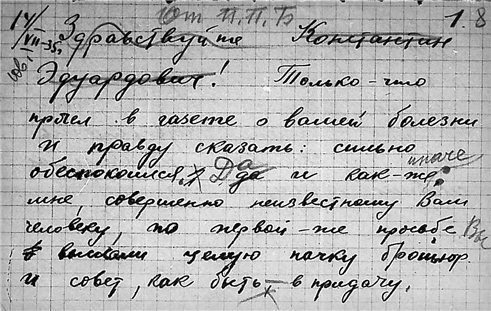 От П.П.Б 1.8
14/VII-35. Здравствуйте Константин
Эдуардович! Только-что
прочел в газете о вашей болезни
и правду сказать: сильно
обеспокоился. Да и как-же иначе:
мне, совершенно неизвестному Вам
человеку, по первой-же просьбе Вы
выслали целую пачку брошюр
и совет, как быть - в придачу.